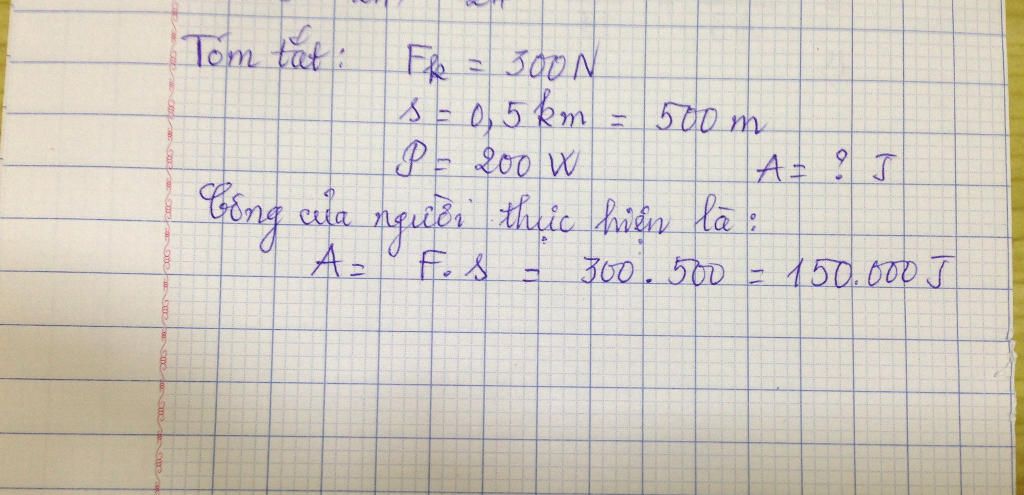 Tóm tắt: Fk = 300N
s = 0,5 km = 500 m
P = 200 W A = ? J
Công của người thực hiện là:
A = F. s = 300 . 500 = 150.000 J